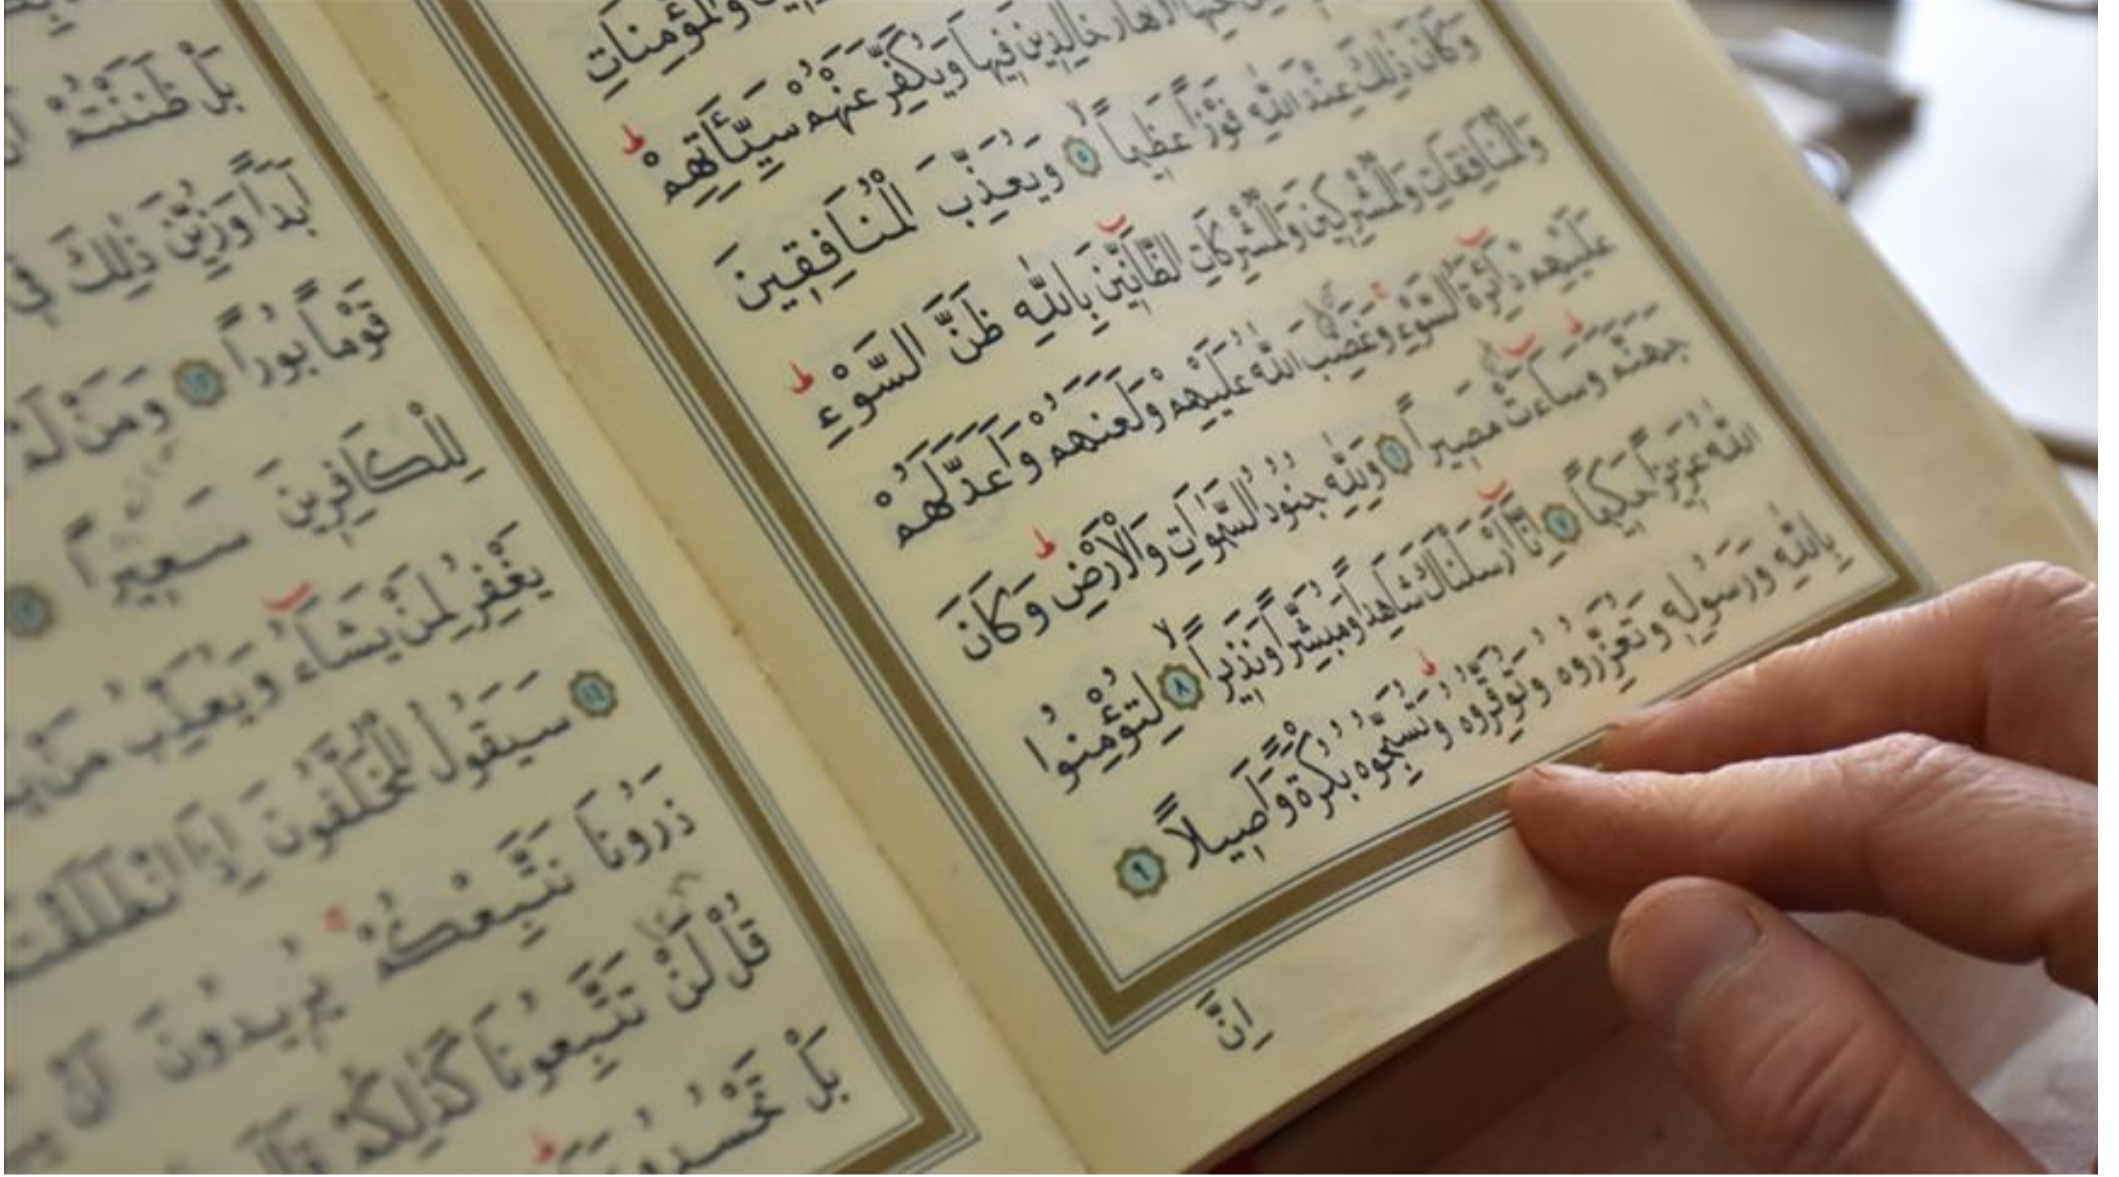 وَالْمُؤْمِنَاتِ
خَالِدِينَ فِيهَا وَيُكَفِّرَ عَنْهُمْ سَيِّـَٔاتِهِمْۜ
وَكَانَ ذٰلِكَ عِنْدَ اللّٰهِ فَوْزاً عَظِيماًۙ ٥ وَيُعَذِّبَ الْمُنَافِقِينَ
وَالْمُنَافِقَاتِ وَالْمُشْرِكِينَ وَالْمُشْرِكَاتِ الظَّٓانِّينَ بِاللّٰهِ ظَنَّ السَّوْءِۜ
عَلَيْهِمْ دَٓائِرَةُ السَّوْءِۚ وَغَضِبَ اللّٰهُ عَلَيْهِمْ وَلَعَنَهُمْ وَاَعَدَّ لَهُمْ
جَهَنَّمَۜ وَسَٓاءَتْ مَصِيراً ٦ وَلِلّٰهِ جُنُودُ السَّمٰوَاتِ وَالْاَرْضِۜ وَكَانَ
اللّٰهُ عَزِيزاً حَكِيماً ٧ اِنَّٓا اَرْسَلْنَاكَ شَاهِداً وَمُبَشِّراً وَنَذِيراًۙ ٨ لِتُؤْمِنُوا
بِاللّٰهِ وَرَسُولِهِ وَتُعَزِّرُوهُ وَتُوَقِّرُوهُۜ وَتُسَبِّحُوهُ بُكْرَةً وَاَصِيلاً ٩
اِنَّ
بَلْ ظَنَنْتُمْ
اَبَداً وَزُيِّنَ ذٰلِكَ فِي
قَوْماً بُوراً ١٢ وَمَنْ لَمْ
لِلْكَافِرِينَ سَعِيراً
يَغْفِرُ لِمَنْ يَشَٓاءُ وَيُعَذِّبُ مَنْ
١٤ سَيَقُولُ الْمُخَلَّفُونَ اِذَا انْطَلَقْتُمْ
ذَرُونَا نَتَّبِعْكُمْۚ يُرِيدُونَ اَنْ
قُلْ لَنْ تَتَّبِعُونَا كَذٰلِكُمْ قَالَ
بَلْ تَحْسُدُونَنَاۜ